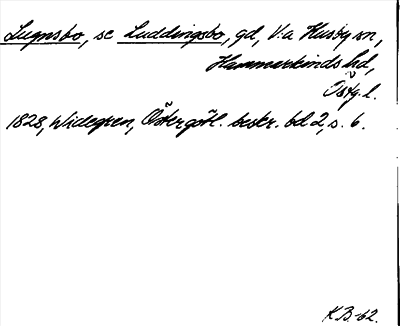 Lugnsbo, se Luddingsbo, gd, V:a Husby sn,
Hammarkinds hd,
Östg. l.
1828, Widegren, Östergötl. beskr. bd 2, s. 6.
K.B.-62.